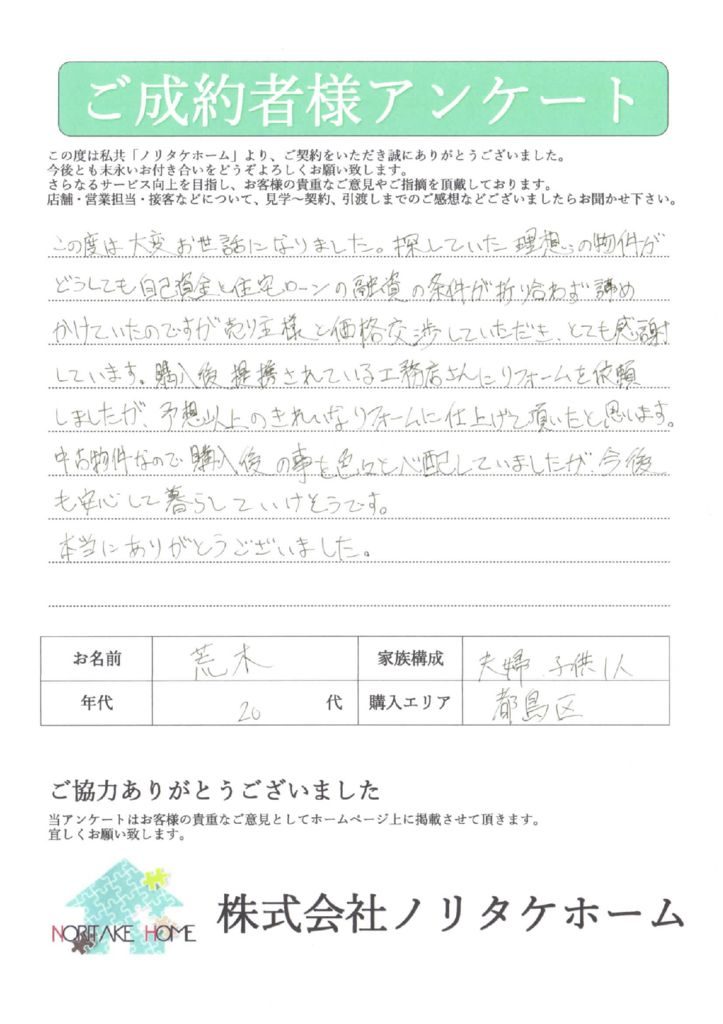 ご成約者様アンケート
この度は私共「ノリタケホーム」より、ご契約をいただき誠にありがとうございました。
今後とも末永いお付き合いをどうぞよろしくお願い致します。
さらなるサービス向上を目指し、お客様の貴重なご意見やご指摘を頂戴しております。
店舗・営業担当・接客などについて、見学～契約、引渡しまでのご感想などございましたらお聞かせ下さい。
この度は大変お世話になりました。探していた理想の物件が
どうしても自己資金と住宅ローンの融資の条件が折り合わず諦め
かけていたのですが売り主様と価格交渉していただき、とても感謝
しています。購入後提携されている工務店さんにリフォームを依頼
しましたが、予想以上のきれいなリフォームに仕上げて頂いたと思います。
中古物件なので購入後の事を色々と心配していましたが今後
も安心して暮らしていけそうです。
本当にありがとうございました。
お名前 荒木 家族構成 夫婦 子供1人
年代 20 代 購入エリア 都島区
ご協力ありがとうございました
当アンケートはお客様の貴重なご意見としてホームページ上に掲載させて頂きます。
宜しくお願い致します。
NORITAKE HOME 株式会社ノリタケホーム